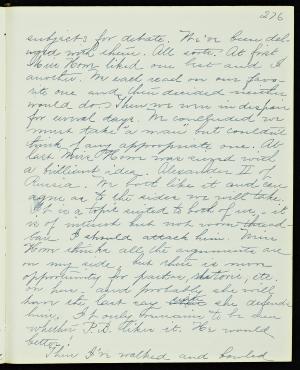 276
subjects for debate. We've been del-
with them. All sorts. At first
Miss Horn liked one best and I
another. We each read on our favo-
rite one and then decided neither
would do. Then we were in despair
for several days. We concluded we
must take "a man" but couldn't
think of any appropriate one. At
last Miss Horn was seized with
a brilliant idea. Alexander II of
Russia. We both like it and can
agree as to the sides we will take.
It is a topic suited to both of us, it
is of interest but not
I should attack him. Miss
Horn thinks all the are
on my side, but there is more
opportunity for pathos, rhetoric, etc.
on hers. and probably she will
have the last say she defends
him. It only remains to be seen
whether P.B. likes it. He would
better!
Then I'm walked and bowled